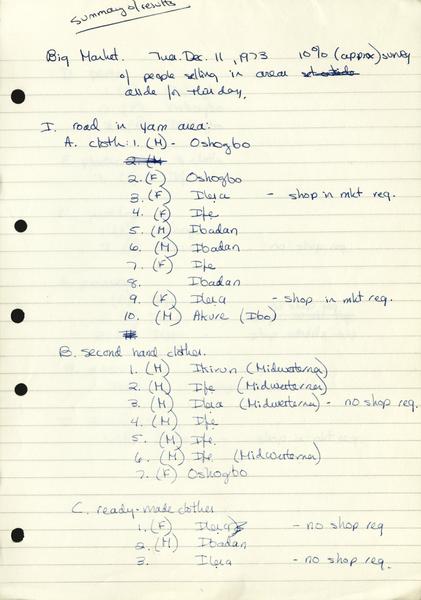 Summary of results
Big Market. Tue. Dec. 11, 1973 10% (approx) survey
of people selling in areas
aside for this day.
I. road in yam area:
A. cloth: 1. (M) - Oshogbo
2. (F) Oshogbo
3. (F) Ilesa - shop in mkt req.
4. (F) Ife
5. (M) Ibadan
6. (M) Ibadan
7. (F) Ife
8. Ibadan
9. (F) Ilesa - shop in mkt req.
10. (M) Akure (Ibo)
B. second hand clothes.
1. (M) Ikirun (Midwesterner)
2. (M) Ife (Midwesterner)
3. (M) Ilesa (Midwesterner) - no shop req.
4. (M) Ife
5. (M) Ife
6. (M) Ife (Midwesterner)
7. (F) Oshogbo
C. ready-made clothes
1. (F) Ilesa - no shop req
2. (M) Ibadan
3. Ilesa - no shop req.